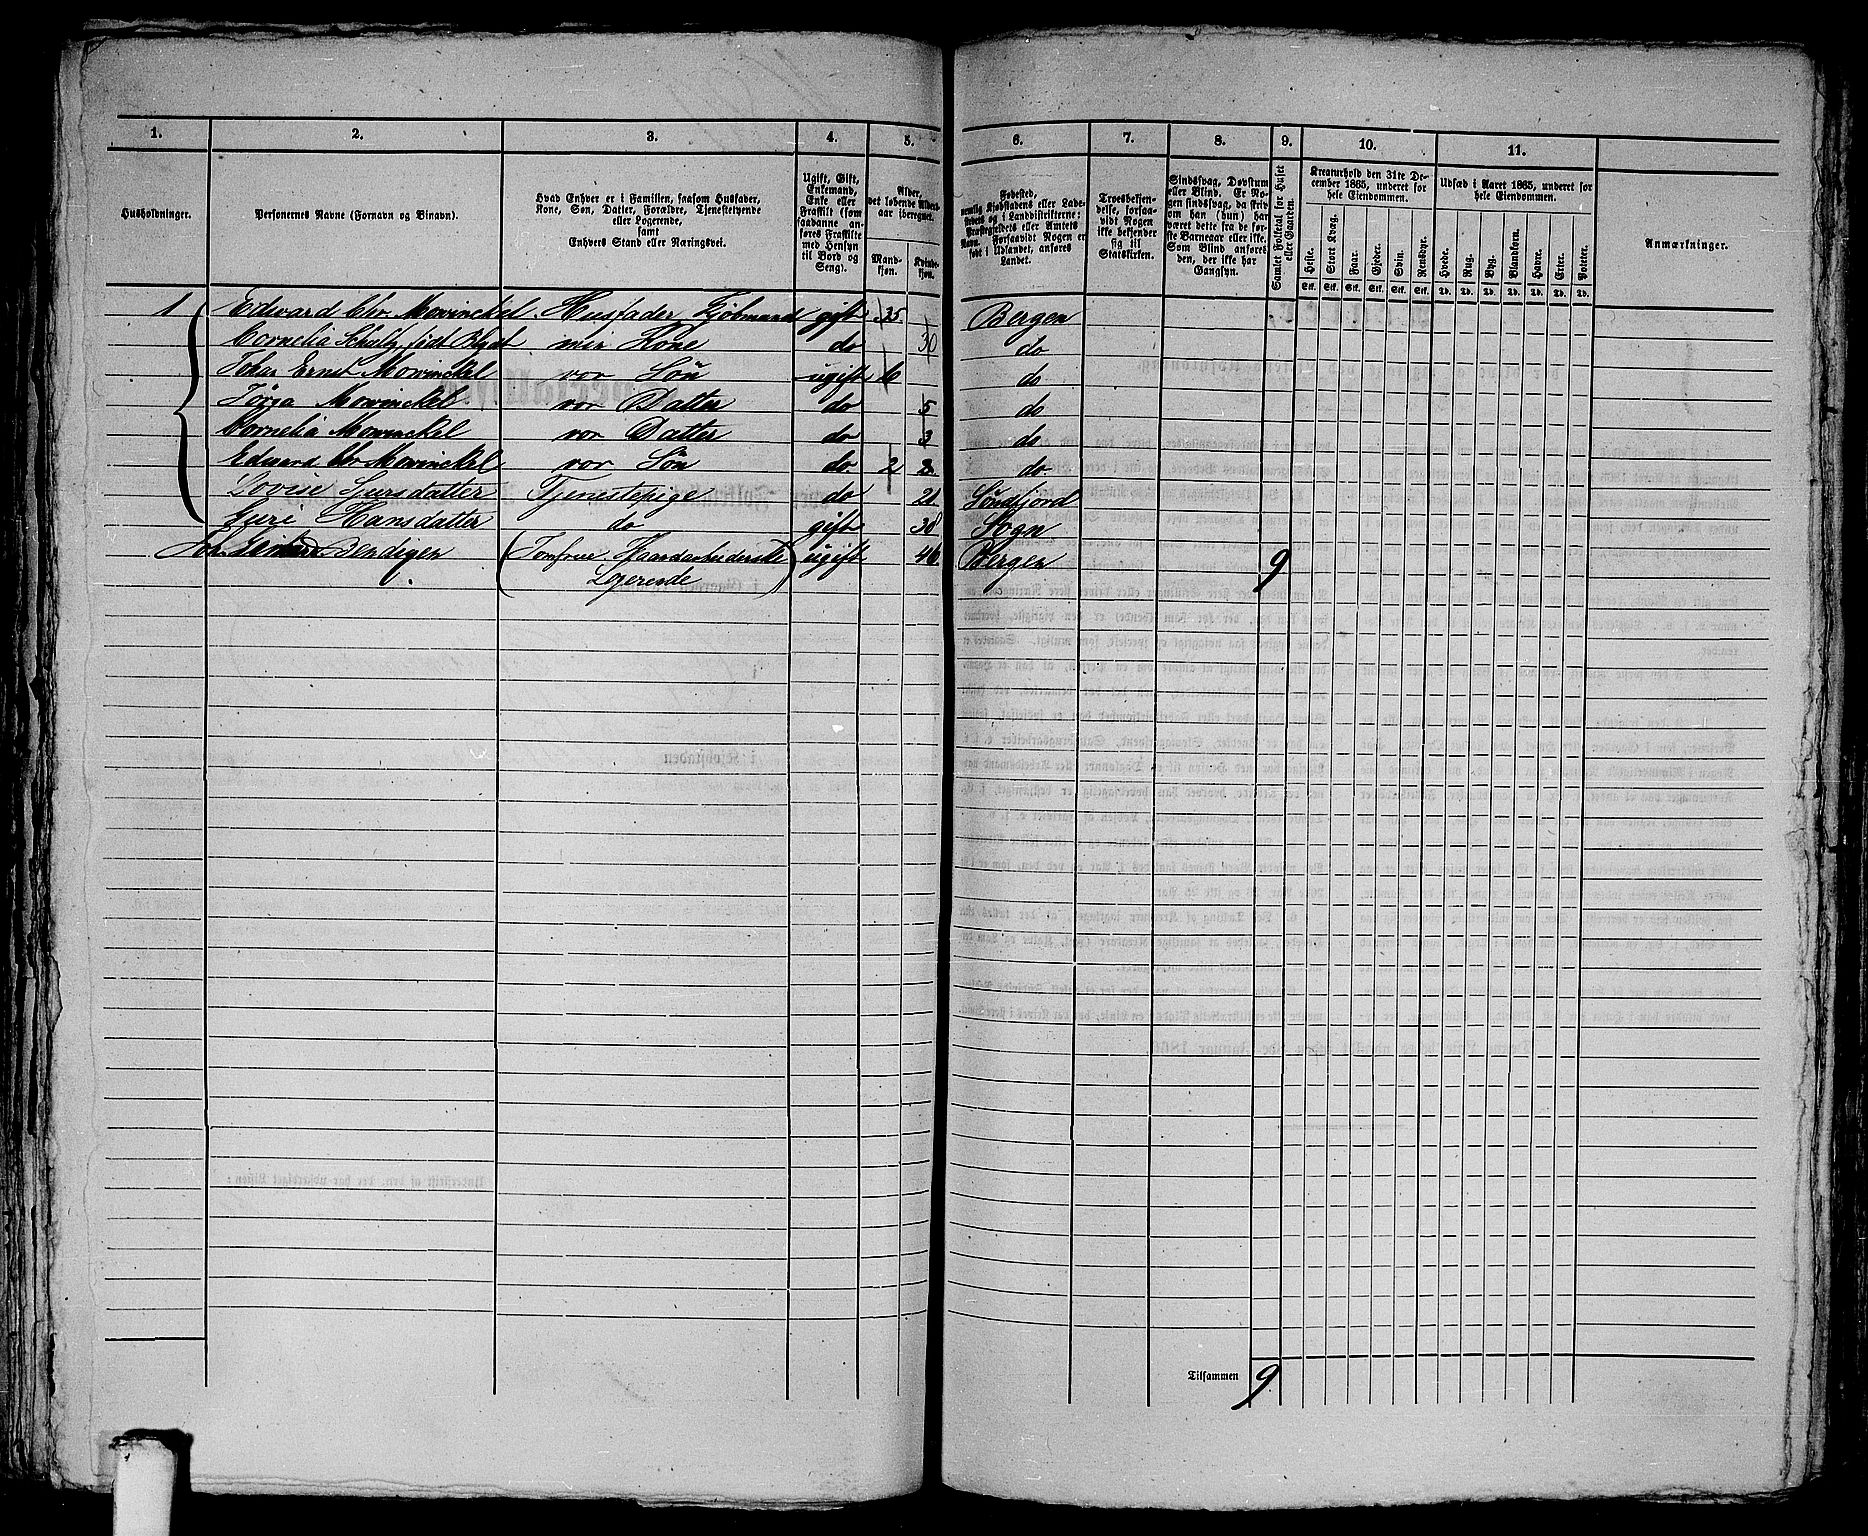 1. 2. 3. 4. 5. 6. 7. 8. 9. 10. 11.
Husholdninger.
Personernes Navne (Fornavn og Binavn).
Hvad Enhver er i Familien, saasom Husfader,
Kone, Søn, Datter, Forældre, Tjenestetyende
eller Logerende,
samt
Enhvers Stand eller Næringsvei.
Ugift, Gift,
Enkemand,
Enke eller
Fraskilt (som
saadanne an-
føres Fraskilte
med Hensyn
til Bord og
Seng).
Alder,
det løbende Alders-
aar iberegnet.
Mand-
kjøn.
Kvinde-
kjøn.
Fødested,
nemlig Kjøbstadens eller Lade-
stedets og i Landdistrikterne:
Præstegjeldets eller Amtets
Navn. Forsaavidt Nogen er
født i Udlandet, anføres
Landet.
Troesbekjen-
delse, forsaa-
vidt Nogen
ikke bekjender
sig til
Statskirken.
Sindssvag, Døvstum
eller Blind. Er No-
gen sindssvag, da skriv
om han (hun) har
været dette fra de før-
ste Barneaar eller ikke.
Som Blind anføres
den, der ikke har
Gangsyn.
Samlet Folketal for Huset
eller Gaarden.
Kreaturhold den 31te De-
cember 1865, underet for
hele Eiendommen.
Heste. Stort Kvæg. Faar. Gjeder. Svin. Rensdyr.
Stk. Stk. Stk. Stk. Stk. Stk.
Udsæd i Aaret 1865, underet for
hele Eiendommen.
Hvede. Rug. Byg. Blandkorn. Havre. Erter. Poteter.
Td. Td. Td. Td. Td. Td. Td.
Anmærkninger.
1 Edvard Chr. Mowinckel. Husfader Kjøbmand gift 35 Bergen
Cornelia Schultz født Blydt min Kone do 30 do
Johan Ernst Mowinckel vor Søn ugift 6 do
Mowinckel vor Datter do 5 do
Cornelia Mowinckel vor Datter do 3 do
Edvard Chr Mowinckel vor Søn do 2 do
Lovise Tjenestepige do 21 Søndfjord
Guri Hansdatter do gift 38 Sogn
Bendixen (Jomfrue Haandarbeiderske) ugift 46 Bergen 9
Logerende
Tilsammen 9